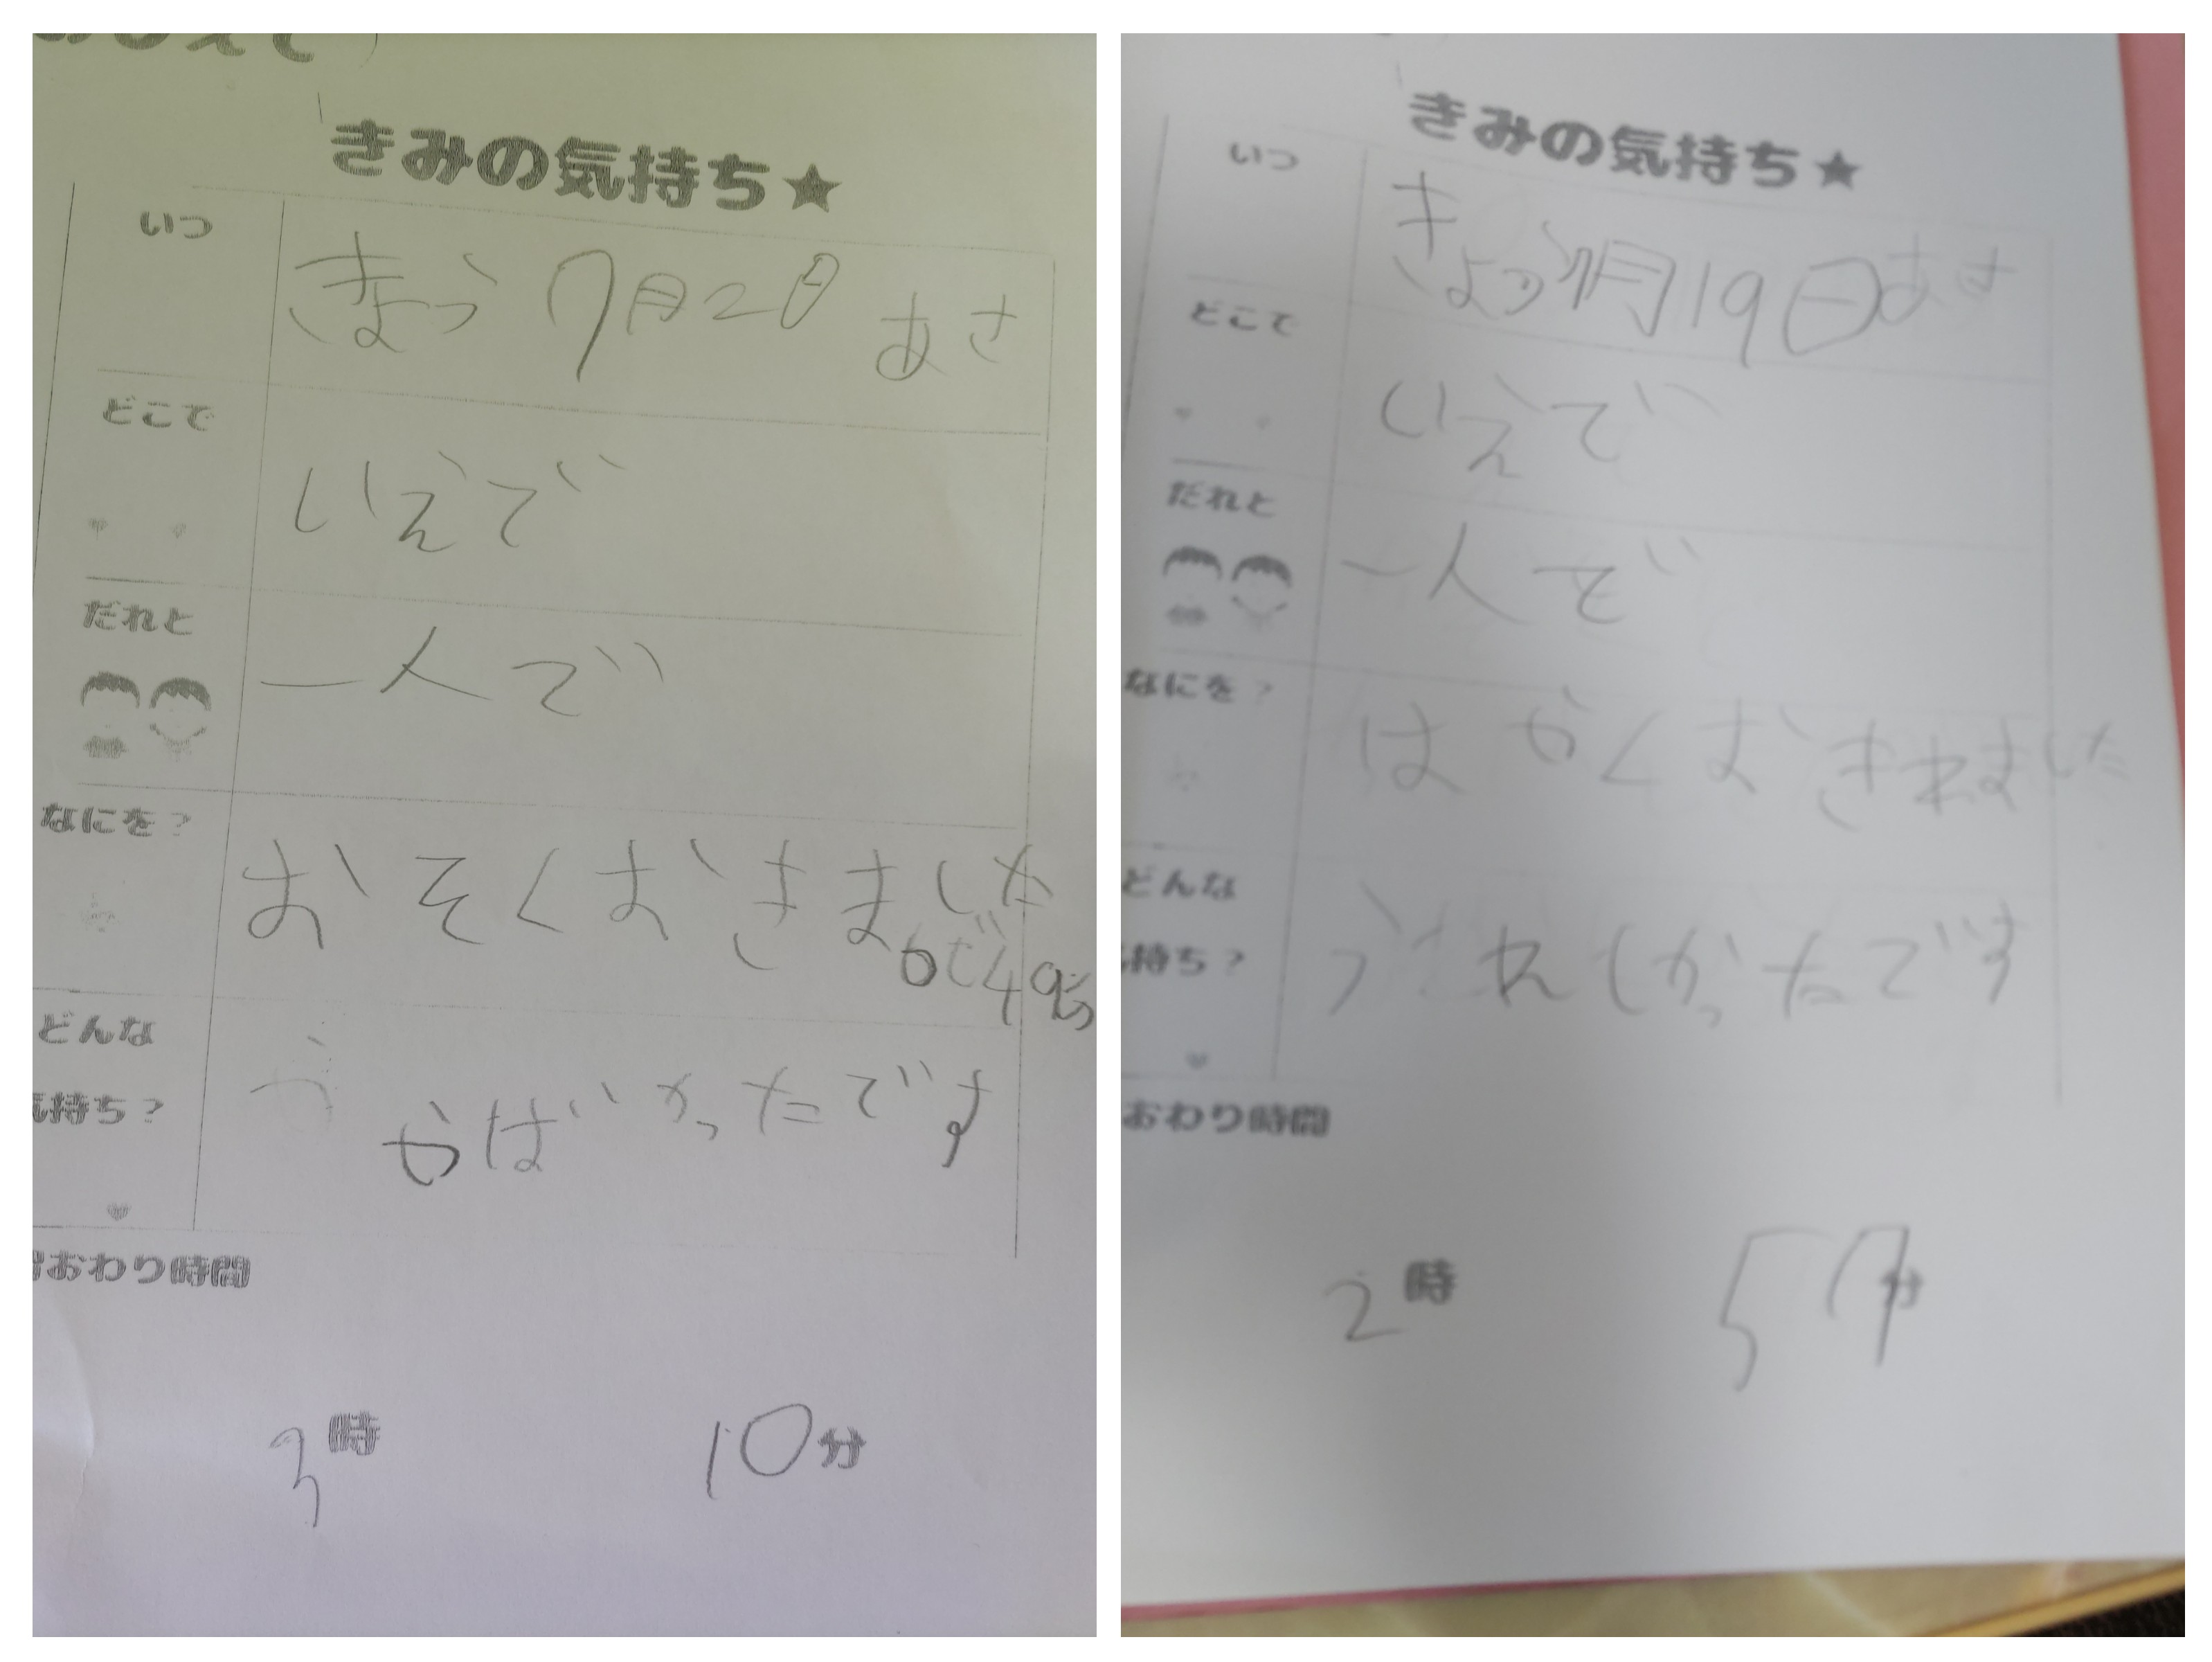 きみの気持ち★
いつ
きょう 7月2日 あさ
どこで
いえで
だれと
一人で
なにを?
おそくおきました
どんな
気持ち?
やばかったです
おわり時間
3時 10分
きみの気持ち★
いつ
きょう 月19日 あさ
どこで
いえで
だれと
一人で
なにを?
はやくおきれました
どんな
持ち?
うれしかったです
おわり時間
2時